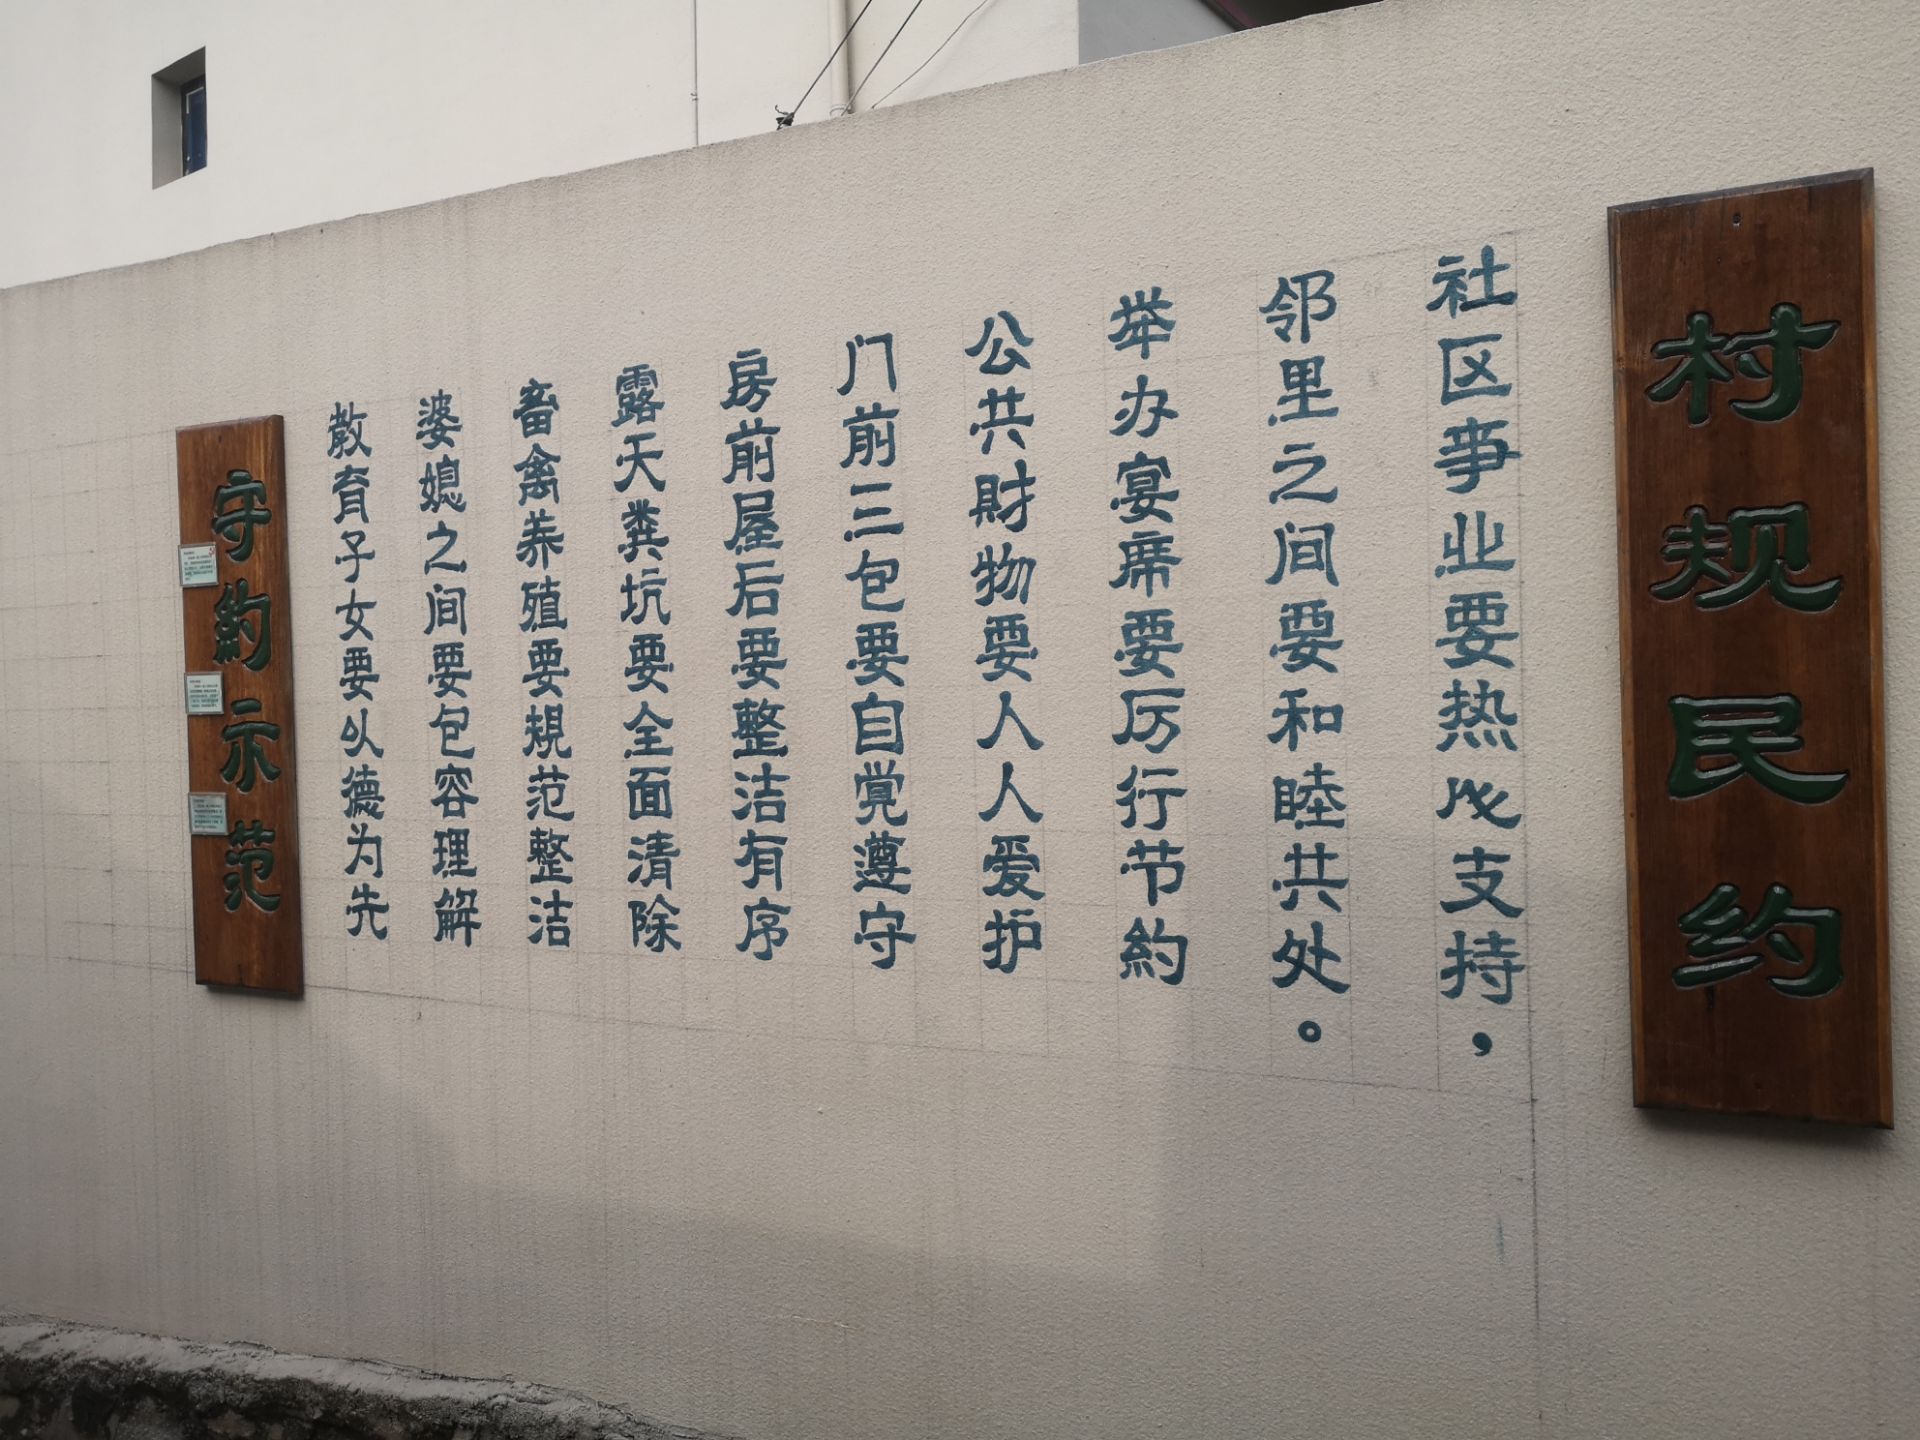 村规民约
社区事业要热心支持，
邻里之间要和睦共处。
举办宴席要厉行节約
公共財物要人人爱护
门前三包要自覚遵守
房前屋后要整洁有序
露天粪坑要全面清除
畜禽养殖要規范整洁
婆媳之间要包容理解
教育子女要以德为先
守約示范